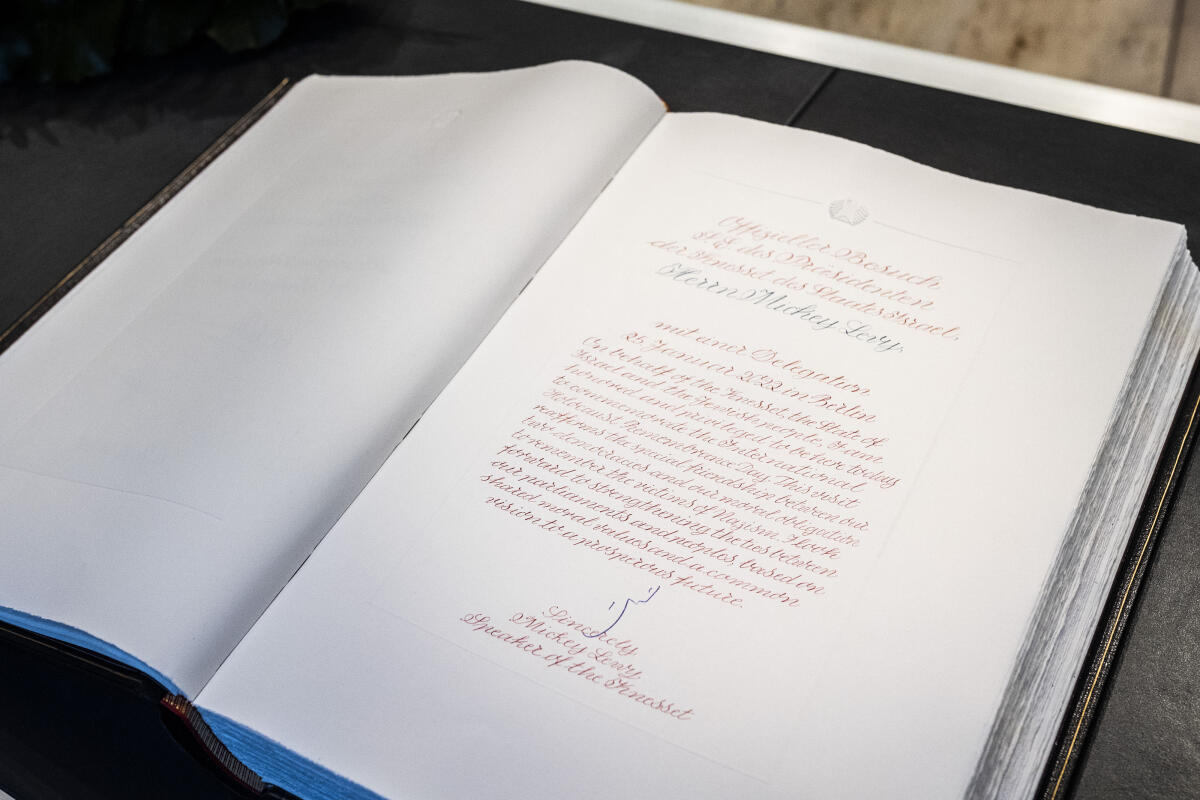 Offizieller Besuch
S.E. des Präsidenten
der Knesset des Staates Israel,
Herrn Mickey Levy,
mit einer Delegation
25. Januar 2022 in Berlin
On behalf of the Knesset, the State of
Israel and the Jewish people, I am
honored and privileged to be here today
to commemorate the International
Holocaust Remembrance Day. This visit
reaffirms the special friendship between our
two democracies and our moral obligation
to remember the victims of Nazism. I look
forward to strengthening the ties between
our parliaments and peoples, based on
shared moral values and a common
vision to a prosperous future.
Sincerely
Mickey Levy,
Speaker of the Knesset